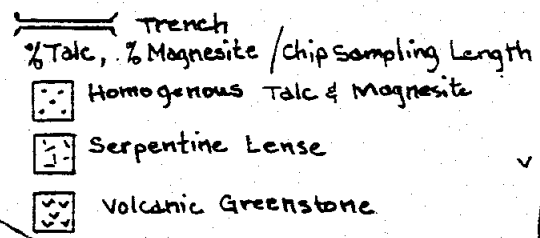 Trench
% Talc, % Magnesite / Chip Sampling Length
Homogenous Talc & Magnesite
Serpentine Lense
Volcanic Greenstone